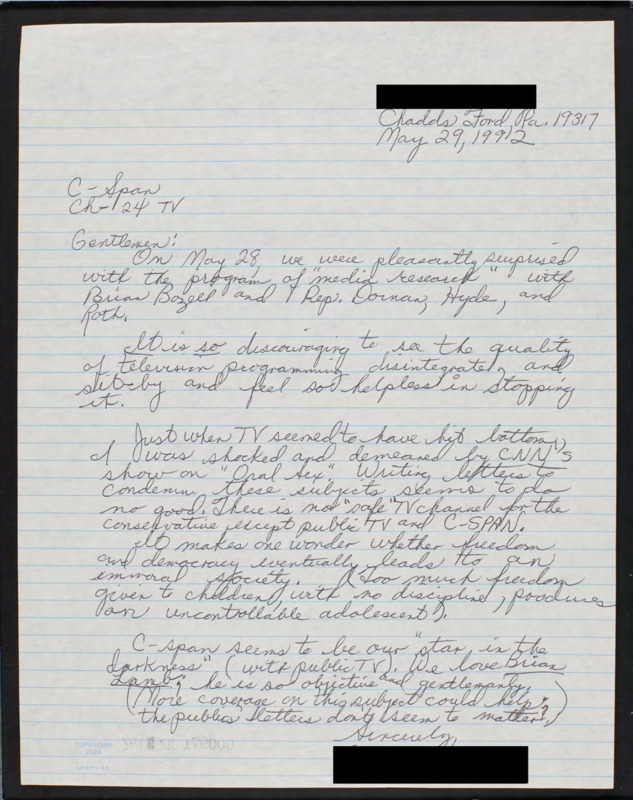 Chadds Ford Pa. 19317
May 29, 1992
C-Span
Ch-24 TV
Gentlemen:
On May 28, we were pleasantly surprised
with the program of "media research" with
Brian Bozell and Rep. Dornan, Hyde, and
Roth.
It is so discouraging to see the quality
of television programming disintegrate, and
sit by and feel so helpless in stopping
it.
Just when TV seemed to have hit bottom,
I was shocked and demeaned by CNN's
show on "Oral Sex". Writing letters to
condemn these subjects seems to do
no good. There is no "safe" TV channel for the
conservative, except public TV and C-SPAN.
It makes one wonder whether freedom
and democracy eventually leads to an
immoral society. (Too much freedom
given to children, with no discipline, produces
an uncontrollable adolescent).
C-span seems to be our "star in the
darkness" (with public TV). We love Brian
Lamb; he is so objective and gentlemanly.
(More coverage on this subject could help;
the publics letters don't seem to matter.)
Sincerely,
TOPS FORM
7529